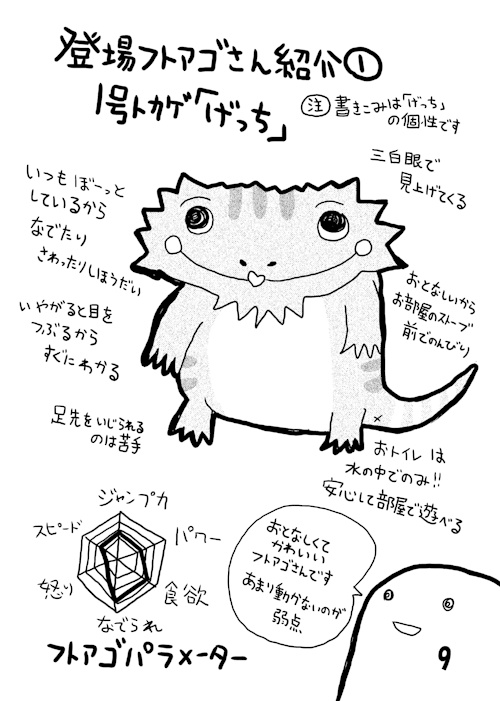 登場フトアゴさん紹介①
1号トカゲ「げっち」
注 書きこみは「げっち」
の個性です
三白眼で
見上げてくる
いつもぼーっと
しているから
なでたり
さわったりしほうだい
いやがると目を
つぶるから
すぐにわかる
足先をいじられる
のは苦手
おとなしいから
お部屋のストーブ
前でのんびり
おトイレは
水の中でのみ!!
安心して部屋で遊べる
ジャンプ力
スピード
パワー
怒り
食欲
なでられ
フトアゴパラメーター
おとなしくて
かわいい
フトアゴさんです
あまり動かないのが
弱点
9